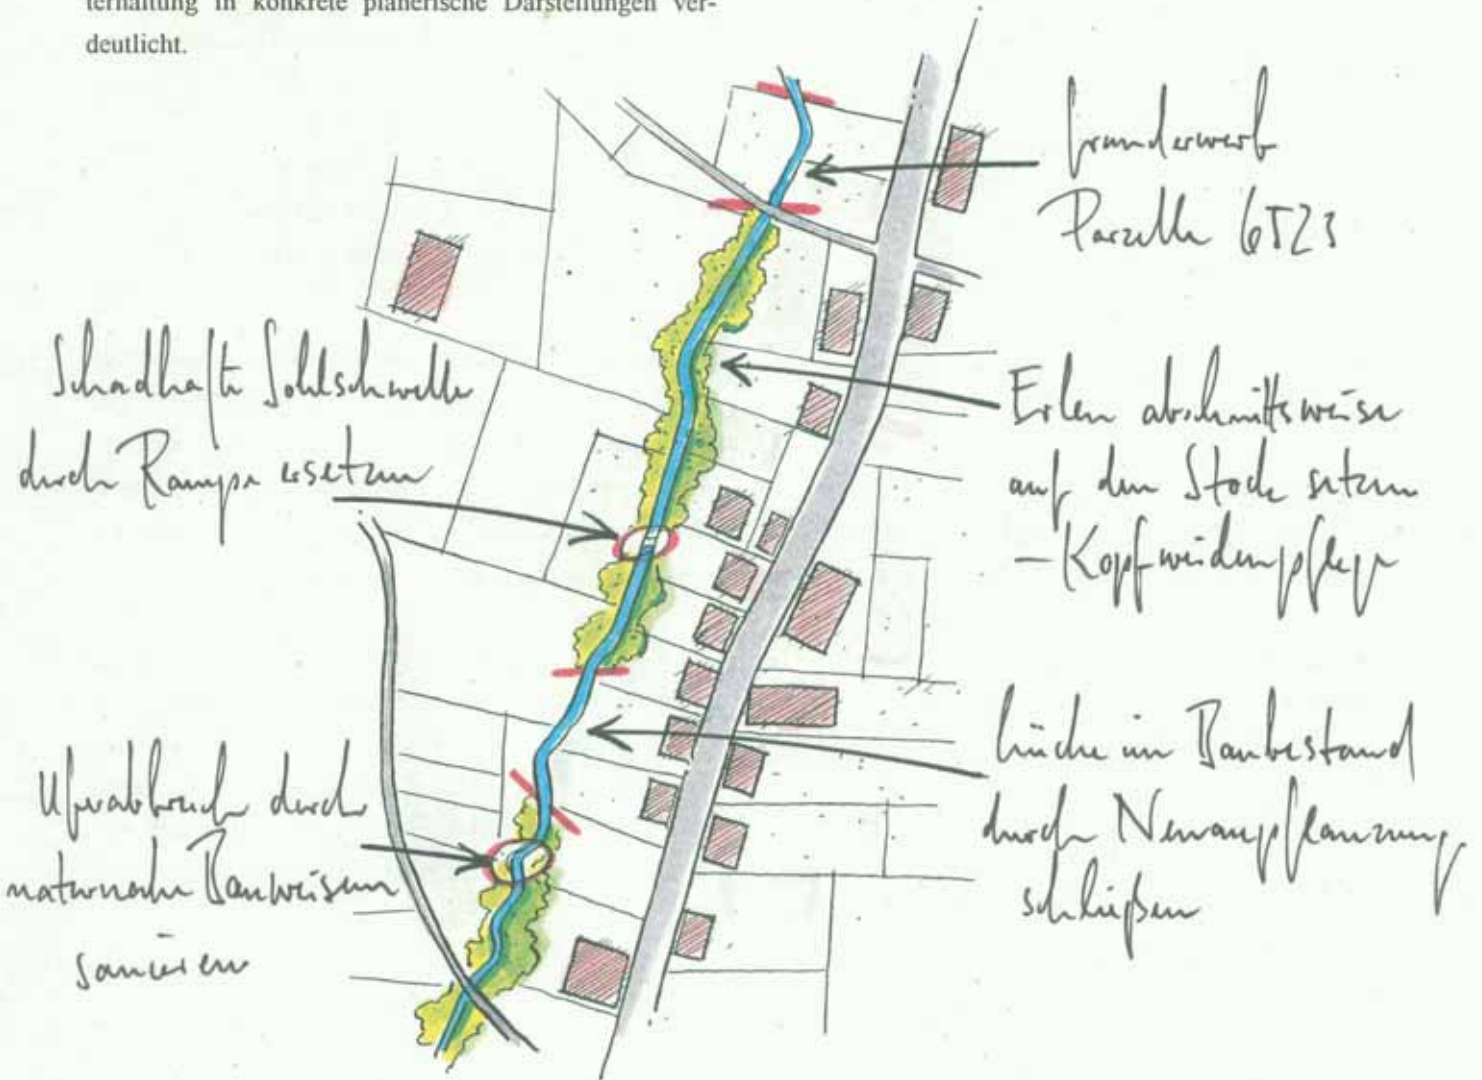 terhaltung in konkrete planerische Darstellungen ver-
deutlicht.
Grunderwerb
Parzelle 6523
Schadhafte Sohlschwelle
durch Rampe ersetzen
Erlen abschnittsweise
auf den Stock setzen
– Kopfweidenpflege
Lücke im Baubestand
durch Neuanpflanzung
schließen
Uferabbruch durch
naturnahe Bauweisen
sanieren